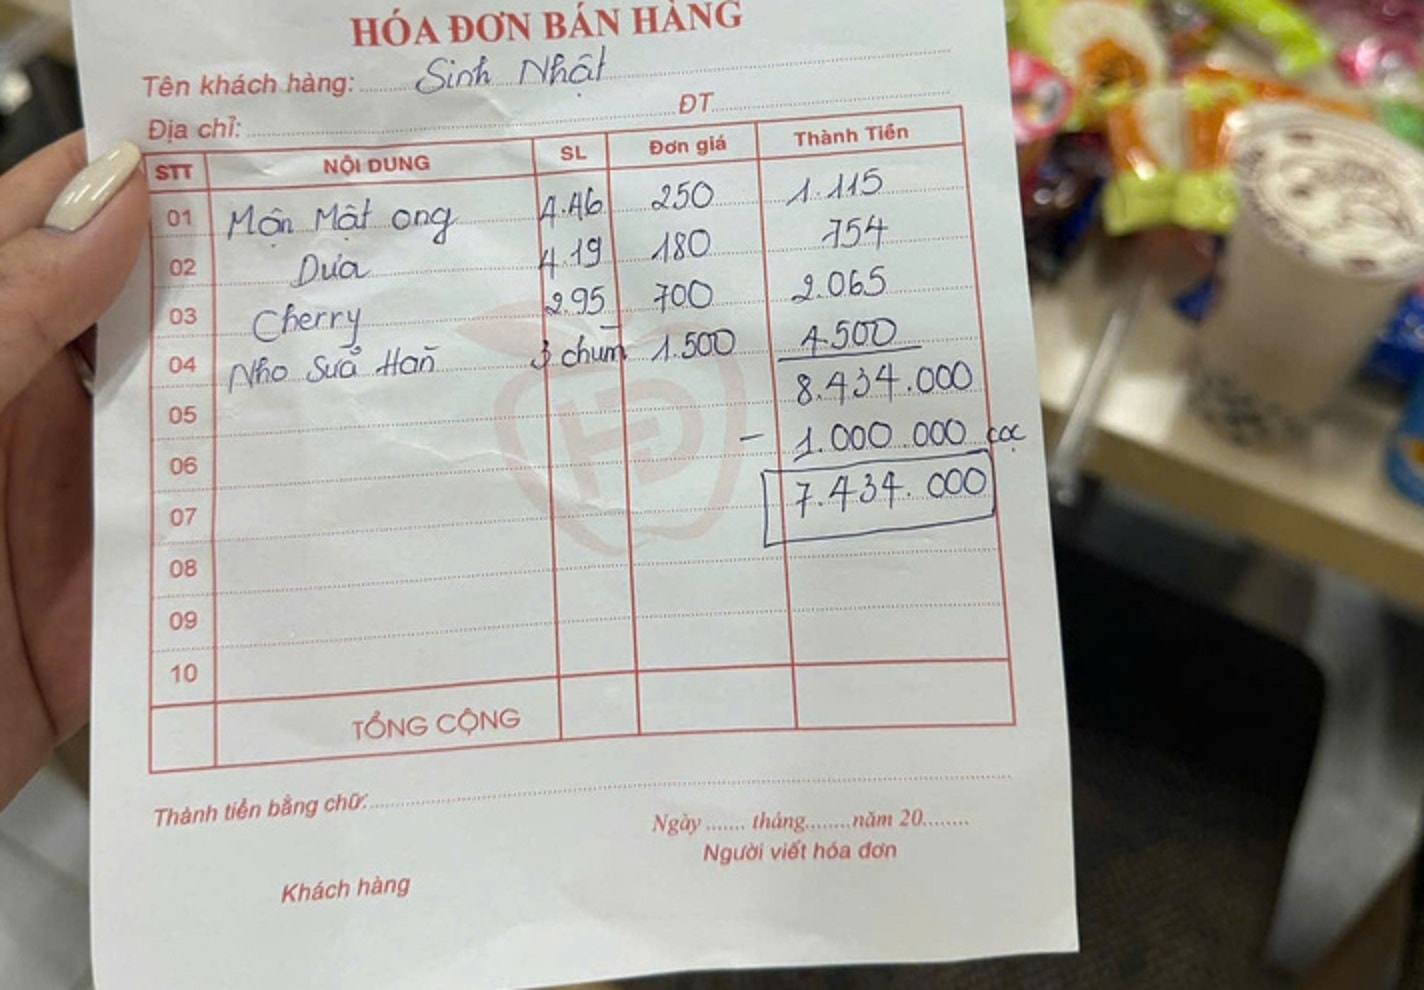 HÓA ĐƠN BÁN HÀNG
Tên khách hàng: Sinh Nhật
Địa chỉ: ĐT
STT NỘI DUNG SL Đơn giá Thành Tiền
01 Mận Mật ong 4.46 250 1.115
02 Dưa 4.19 180 754
03 Cherry 2.95 700 2.065
04 Nho Sữa Hàn 3 chùm 1.500 4.500
05 8.434.000
06 - 1.000.000 cọc
07 7.434.000
08
09
10
TỔNG CỘNG
Thành tiền bằng chữ:
Ngày ....... tháng........năm 20........
Người viết hóa đơn
Khách hàng